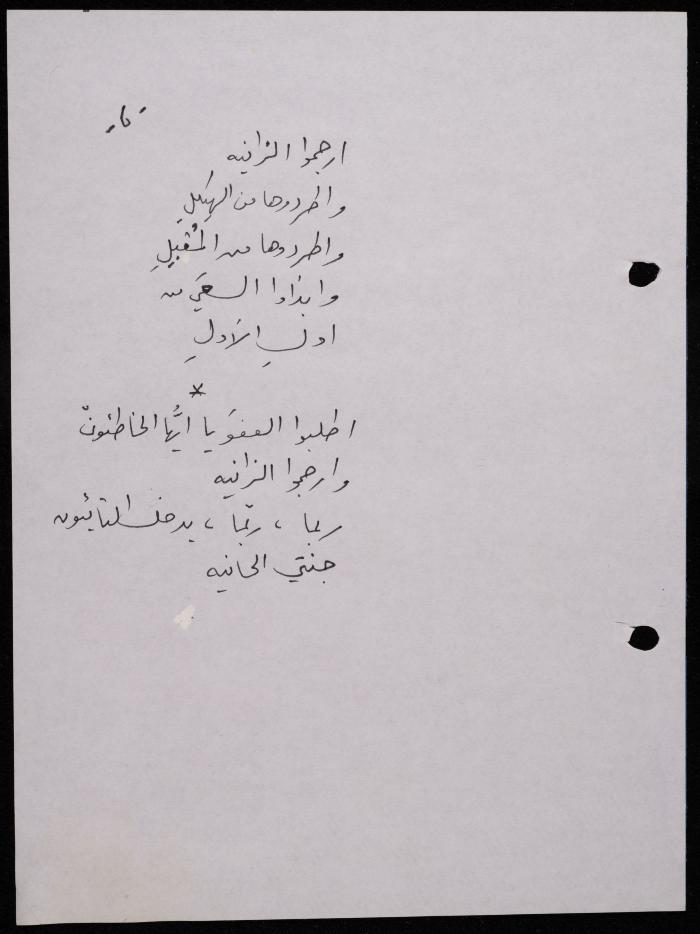 ارجموا الزانيه
واطردوها من الهيكلِ
واطردوها من المُقبِلِ
وابدَاوا السعيَ من
اولِ الاَولِ
*
اطلبوا العفوَ يا ايُّها الخاطئونْ
وارجموا الزانيه
ربما ، ربّما ، يدخل التائبون
جنتي الحانيه